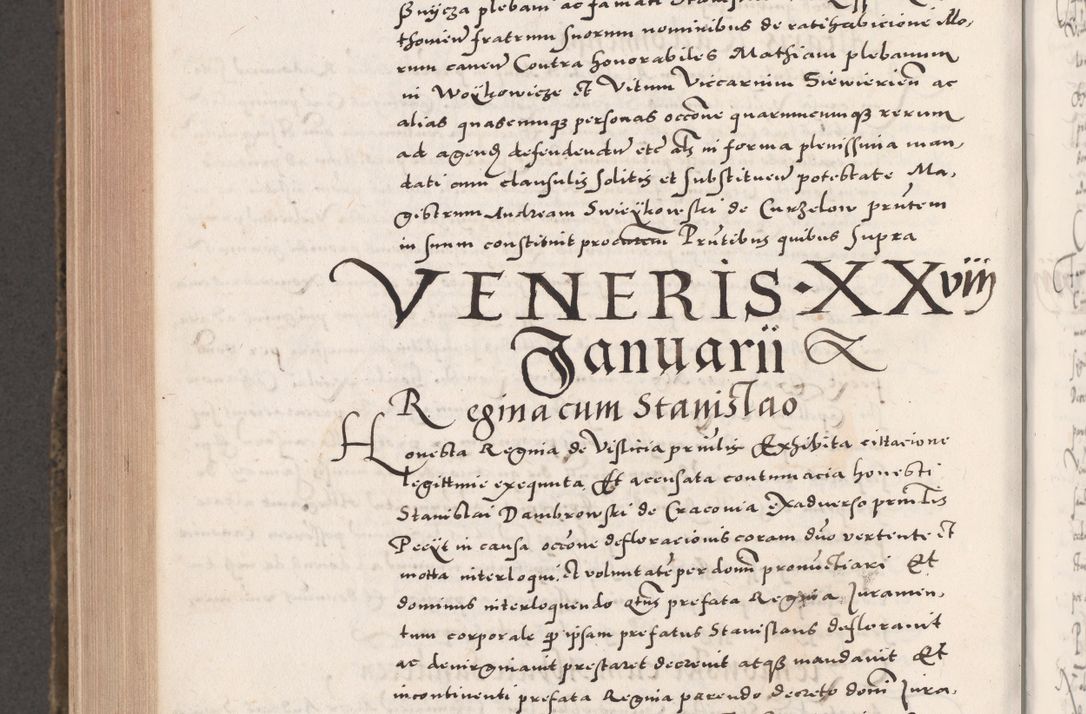 thomeu fratrum suorum nominibus de ratihabicione illo,
rum caueu Contra honorabiles Mathiam plebanum
in Woykowicze et Vitum Viccarium Siewierien ac
alias quascumq personas occone quarumcumq rerum
ad agend defendendu etc als in forma plenissima man,
dati cum clausulis solitis et substitueu potestate Ma,
gistrum Andream Swieykowski de Curzelow prntem
in suum constituit procurem Prntibus quibus supra
VENERIS·XXviij
Januarii
Regina cum Stanislao
Honesta Regina de Vislicia principalis Exhibita cittacione
legittime exequuta Et accusata contumacia honesti
Stanislai Dambrowski de Cracouia Exaduerso principalis
Peeyt in causa occone defloracionis coram duo vertente et
motta interloqui et voluntate per domin pronunctiari Et
dominus interloquendo qtus prefata Regina Juramen,
tum corporale q ipsam prefatus Stanislaus deflorauit
ac deuirginauit prestaret decreuit atq mandauit Et
incontinenti prefata Regina parendo decreto domi Jura,